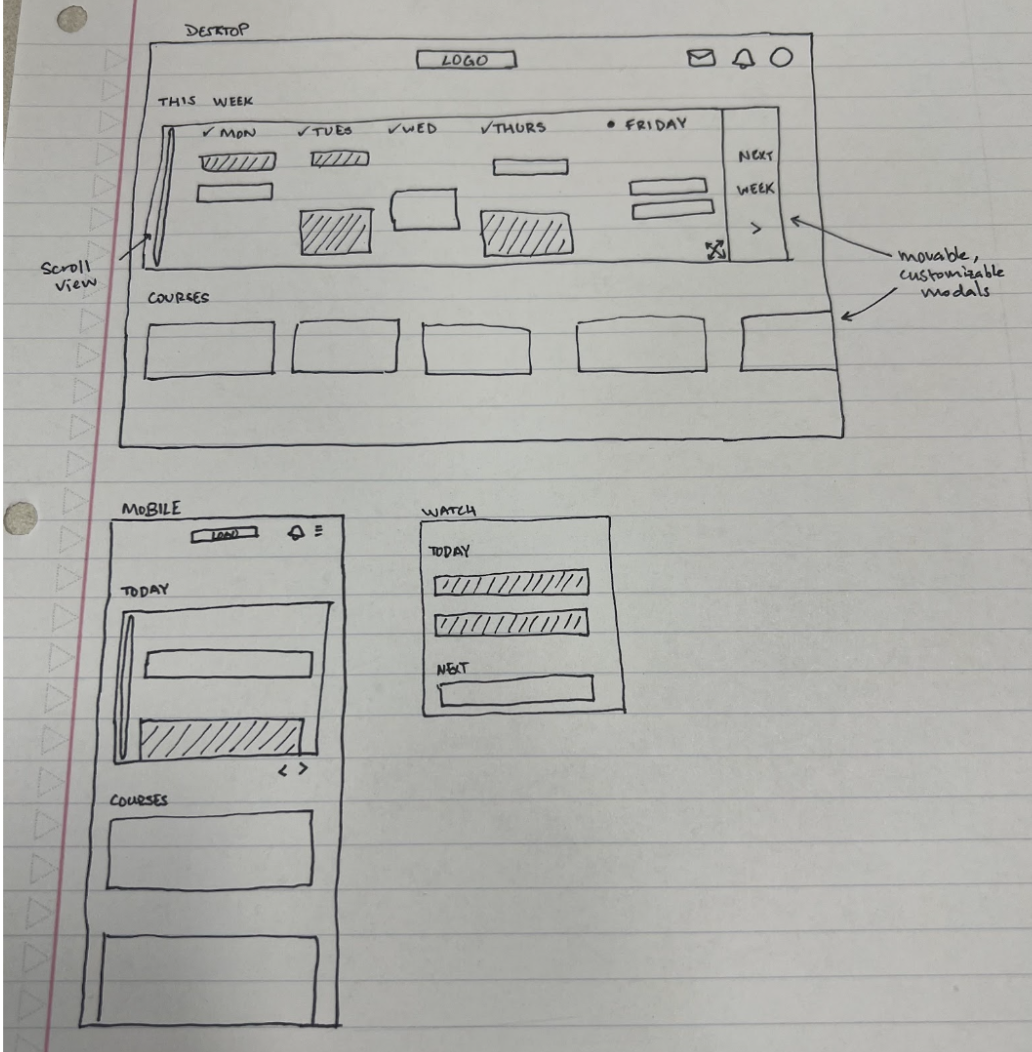 DESKTOP
LOGO
THIS WEEK
✓ MON ✓ TUES ✓ WED ✓ THURS • FRIDAY
NEXT
WEEK
>
Scroll
view
movable,
customizable
modals
COURSES
MOBILE
LOGO
TODAY
< >
COURSES
WATCH
TODAY
NEXT